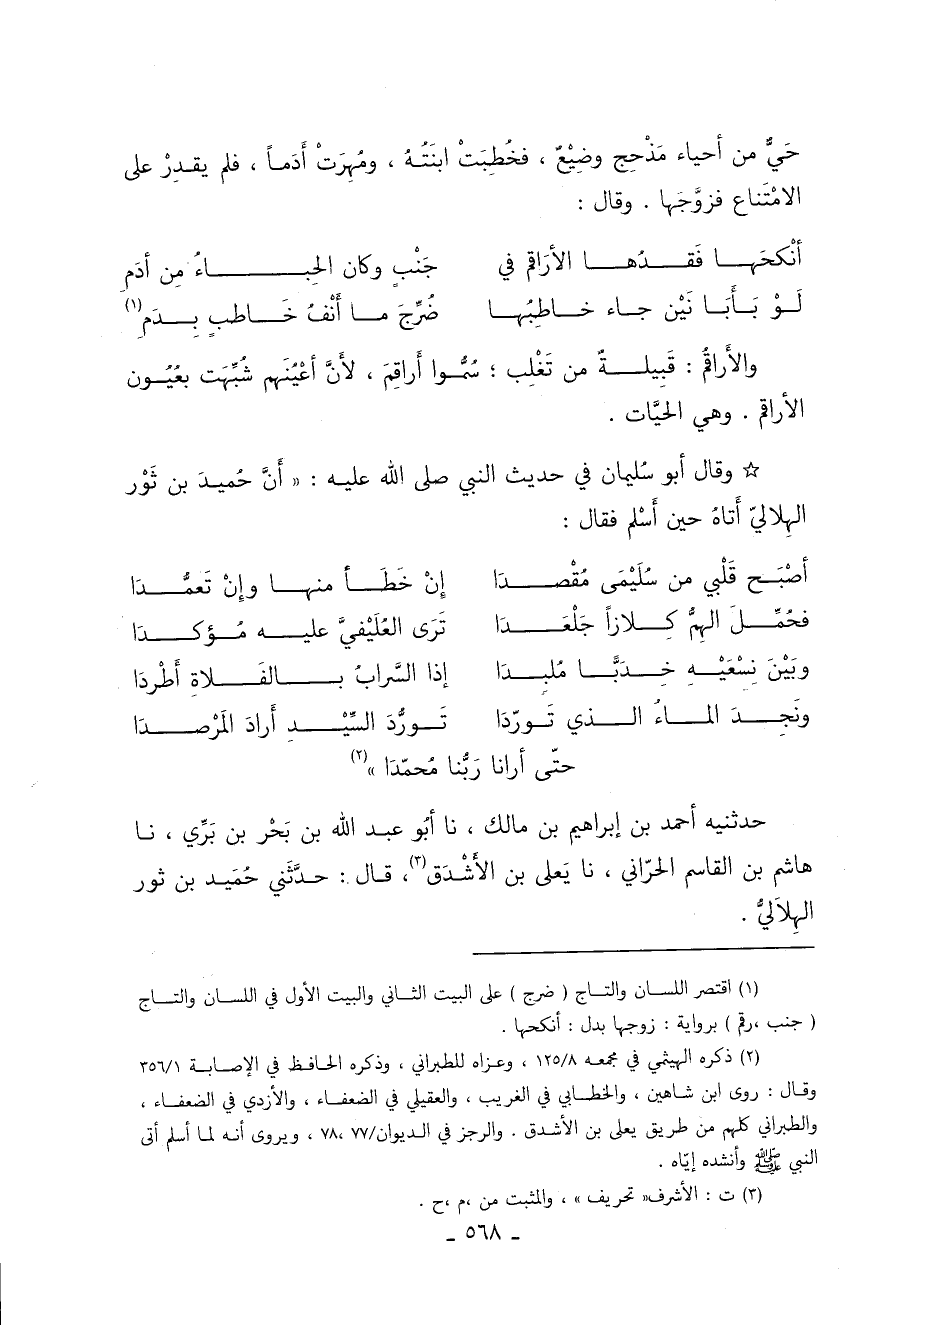 حَيٌّ من أحياء مَذْحِج وضِيْعٌ ، فخُطِبَتْ ابنَتُهُ ، ومُهِرَتْ أدَماً ، فلم يقدِرْ على
الامْتَناع فزوَّجَها . وقال :
أنْكحَها فَقْدُها الأرَاقمَ في جَنْبٍ وكان الحِباءُ مِن أدَمِ
لَوْ بَأَبَا نَيْن جاء خاطِبُها ضُرِّجَ ما أنْفُ خَاطبٍ بِدَمِ(١)
والأراقمُ : قَبِيلةٌ من تَغْلِب ؛ سُمُّوا أراقِمَ ، لأنَّ أعْيُنَهم شُبِّهَت بعُيُون
الأراقم . وهي الحيَّات .
☆ وقال أبو سُليمان في حديث النبي صلى الله عليه : « أنَّ حُميدَ بن ثَوْر
الهِلاليّ أتاهُ حين أسْلم فقال :
أصْبَح قَلْبي من سُلَيْمَى مُقْصَدا إنْ خَطَأً منها وإنْ تَعمُّدا
فحُمِّلَ الهِمُّ كِلازاً جَلْعَدا تَرَى العُلَيْفيَّ عليه مُؤكَدا
وبَيْنَ نِسْعَيْه خِدَبًّا مُلْبِدا إذا السَّرابُ بالفَلاةِ أطْرَدَا
ونَجِدَ الماءُ الذي تَورّدَا تَورُّدَ السِّيْدِ أرادَ المَرْصدا
حتّى أرانا رَبُّنا مُحمّدَا »(٢)
حدثنيه أحمد بن إبراهيم بن مالك ، نا أبُو عبد الله بن بَحْر بن بَرِّي ، نا
هاشم بن القاسم الحَرّاني ، نا يَعلى بن الأَشْدَق(٣)، قال : حدَّثَني حُمَيد بن ثور
الهِلاَليُّ .
(١) اقتصر اللسان والتاج ( ضرج ) على البيت الثاني والبيت الأول في اللسان والتاج
( جنب ،رقم ) برواية : زوجها بدل : أنكحها .
(٢) ذكره الهيثمي في مجمعه ١٢٥/٨ ، وعزاه للطبراني ، وذكره الحافظ في الإصابة ٣٥٦/١
وقال : روى ابن شاهين ، والخطابي في الغريب ، والعقيلي في الضعفاء ، والأزدي في الضعفاء ،
والطبراني كلهم من طريق يعلى بن الأشدق . والرجز في الديوان/٧٧ ،٧٨ ، ويروى أنه لما أسلم أتى
النبي ﷺ وأنشده إيّاه .
(٣) ت : الأشرف« تحريف » ، والمثبت من ،م ،ح .
ـ ٥٦٨ ـ